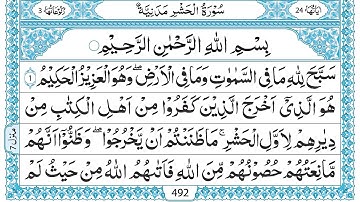 اٰیَاتُهَا 24 سُوْرَةُ الْحَشْرِ مَدَنِیَّةٌ رُكُوْعَاتُهَا 3
بِسْمِ اللّٰهِ الرَّحْمٰنِ الرَّحِیْمِ
سَبَّحَ لِلّٰهِ مَا فِی السَّمٰوٰتِ وَمَا فِی الْاَرْضِ ۚ وَهُوَ الْعَزِیْزُ الْحَكِیْمُ ۝۱
هُوَ الَّذِیْۤ اَخْرَجَ الَّذِیْنَ كَفَرُوْا مِنْ اَهْلِ الْكِتٰبِ مِنْ
دِیَارِهِمْ لِاَوَّلِ الْحَشْرِ ؔؕ مَا ظَنَنْتُمْ اَنْ یَّخْرُجُوْا وَظَنُّوْۤا اَنَّهُمْ
مَّانِعَتُهُمْ حُصُوْنُهُمْ مِّنَ اللّٰهِ فَاَتٰىهُمُ اللّٰهُ مِنْ حَیْثُ لَمْ
492